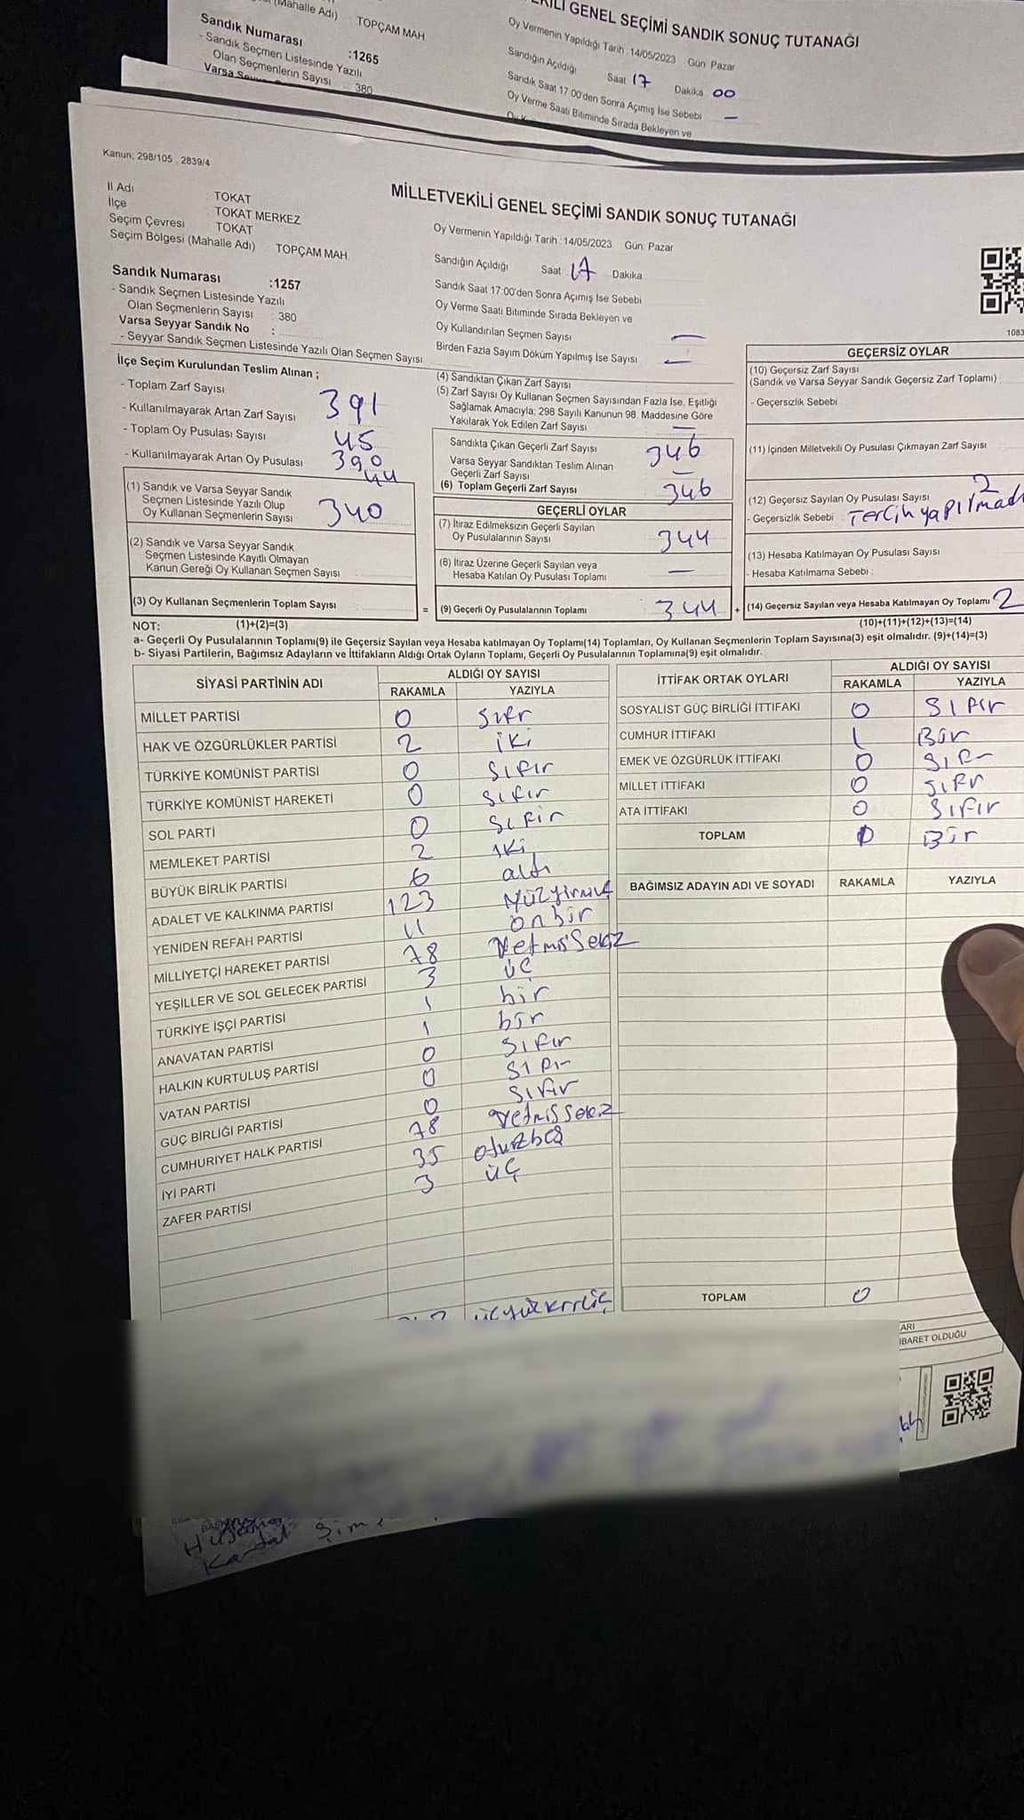 (Mahalle Adı) TOPÇAM MAH
Sandık Numarası :1265
- Sandık Seçmen Listesinde Yazılı
Olan Seçmenlerin Sayısı 380
GENEL SEÇİMİ SANDIK SONUÇ TUTANAĞI
Oy Vermenin Yapıldığı Tarih :14/05/2023 Gün Pazar
Sandığın Açıldığı Saat 17 Dakika 00
Sandık Saat 17:00'den Sonra Açımış İse Sebebi —
Oy Verme Saati Bitiminde Sırada Bekleyen ve
Kanun: 298/105 , 2839/4
İl Adı TOKAT
İlçe TOKAT MERKEZ
Seçim Çevresi TOKAT
Seçim Bölgesi (Mahalle Adı) TOPÇAM MAH
Sandık Numarası :1257
- Sandık Seçmen Listesinde Yazılı
Olan Seçmenlerin Sayısı : 380
Varsa Seyyar Sandık No :
- Seyyar Sandık Seçmen Listesinde Yazılı Olan Seçmen Sayısı
MİLLETVEKİLİ GENEL SEÇİMİ SANDIK SONUÇ TUTANAĞI
Oy Vermenin Yapıldığı Tarih :14/05/2023 Gün: Pazar
Sandığın Açıldığı Saat 17 Dakika
Sandık Saat 17:00'den Sonra Açımış İse Sebebi
Oy Verme Saati Bitiminde Sırada Bekleyen ve
Oy Kullandırılan Seçmen Sayısı —
Birden Fazla Sayım Döküm Yapılmış İse Sayısı —
1083
İlçe Seçim Kurulundan Teslim Alınan ;
- Toplam Zarf Sayısı 391
- Kullanılmayarak Artan Zarf Sayısı 45
- Toplam Oy Pusulası Sayısı 390
- Kullanılmayarak Artan Oy Pusulası 44
(1) Sandık ve Varsa Seyyar Sandık
Seçmen Listesinde Yazılı Olup
Oy Kullanan Seçmenlerin Sayısı 340
(2) Sandık ve Varsa Seyyar Sandık
Seçmen Listesinde Kayıtlı Olmayan
Kanun Gereği Oy Kullanan Seçmen Sayısı
(3) Oy Kullanan Seçmenlerin Toplam Sayısı =
(4) Sandıktan Çıkan Zarf Sayısı
(5) Zarf Sayısı Oy Kullanan Seçmen Sayısından Fazla İse, Eşitliği
Sağlamak Amacıyla; 298 Sayılı Kanunun 98. Maddesine Göre
Yakılarak Yok Edilen Zarf Sayısı —
Sandıkta Çıkan Geçerli Zarf Sayısı 346
Varsa Seyyar Sandıktan Teslim Alınan
Geçerli Zarf Sayısı —
(6) Toplam Geçerli Zarf Sayısı 346
GEÇERLİ OYLAR
(7) İtiraz Edilmeksizin Geçerli Sayılan
Oy Pusulalarının Sayısı 344
(8) İtiraz Üzerine Geçerli Sayılan veya
Hesaba Katılan Oy Pusulası Toplamı —
(9) Geçerli Oy Pusulalarının Toplamı 344 +
GEÇERSİZ OYLAR
(10) Geçersiz Zarf Sayısı
(Sandık ve Varsa Seyyar Sandık Geçersiz Zarf Toplamı) :
- Geçersizlik Sebebi
(11) İçinden Milletvekili Oy Pusulası Çıkmayan Zarf Sayısı
(12) Geçersiz Sayılan Oy Pusulası Sayısı 2
- Geçersizlik Sebebi Tercih yapılmadı
(13) Hesaba Katılmayan Oy Pusulası Sayısı
- Hesaba Katılmama Sebebi :
(14) Geçersiz Sayılan veya Hesaba Katılmayan Oy Toplamı 2
NOT: (1)+(2)=(3) (10)+(11)+(12)+(13)=(14)
a- Geçerli Oy Pusulalarının Toplamı(9) ile Geçersiz Sayılan veya Hesaba katılmayan Oy Toplamı(14) Toplamları, Oy Kullanan Seçmenlerin Toplam Sayısına(3) eşit olmalıdır. (9)+(14)=(3)
b- Siyasi Partilerin, Bağımsız Adayların ve İttifakların Aldığı Ortak Oyların Toplamı, Geçerli Oy Pusulalarının Toplamına(9) eşit olmalıdır.
SİYASİ PARTİNİN ADI ALDIĞI OY SAYISI
RAKAMLA YAZIYLA
MİLLET PARTİSİ 0 Sıfır
HAK VE ÖZGÜRLÜKLER PARTİSİ 2 iki
TÜRKİYE KOMÜNİST PARTİSİ 0 Sıfır
TÜRKİYE KOMÜNİST HAREKETİ 0 Sıfır
SOL PARTİ 0 Sıfır
MEMLEKET PARTİSİ 2 iki
BÜYÜK BİRLİK PARTİSİ 6 altı
ADALET VE KALKINMA PARTİSİ 123
YENİDEN REFAH PARTİSİ 11 onbir
MİLLİYETÇİ HAREKET PARTİSİ 78 Yetmişsekiz
YEŞİLLER VE SOL GELECEK PARTİSİ 3 üç
TÜRKİYE İŞÇİ PARTİSİ 1 bir
ANAVATAN PARTİSİ 1 bir
HALKIN KURTULUŞ PARTİSİ 0 Sıfır
VATAN PARTİSİ 0 Sıfır
GÜÇ BİRLİĞİ PARTİSİ 0 Sıfır
CUMHURİYET HALK PARTİSİ 78 Yetmişsekiz
İYİ PARTİ 35 otuzbeş
ZAFER PARTİSİ 3 üç
İTTİFAK ORTAK OYLARI ALDIĞI OY SAYISI
RAKAMLA YAZIYLA
SOSYALİST GÜÇ BİRLİĞİ İTTİFAKI 0 Sıfır
CUMHUR İTTİFAKI 1 Bir
EMEK VE ÖZGÜRLÜK İTTİFAKI 0 Sıfır
MİLLET İTTİFAKI 0 Sıfır
ATA İTTİFAKI 0 Sıfır
TOPLAM Bir
BAĞIMSIZ ADAYIN ADI VE SOYADI RAKAMLA YAZIYLA
TOPLAM 0
ARI
İBARET OLDUĞU
Kartal